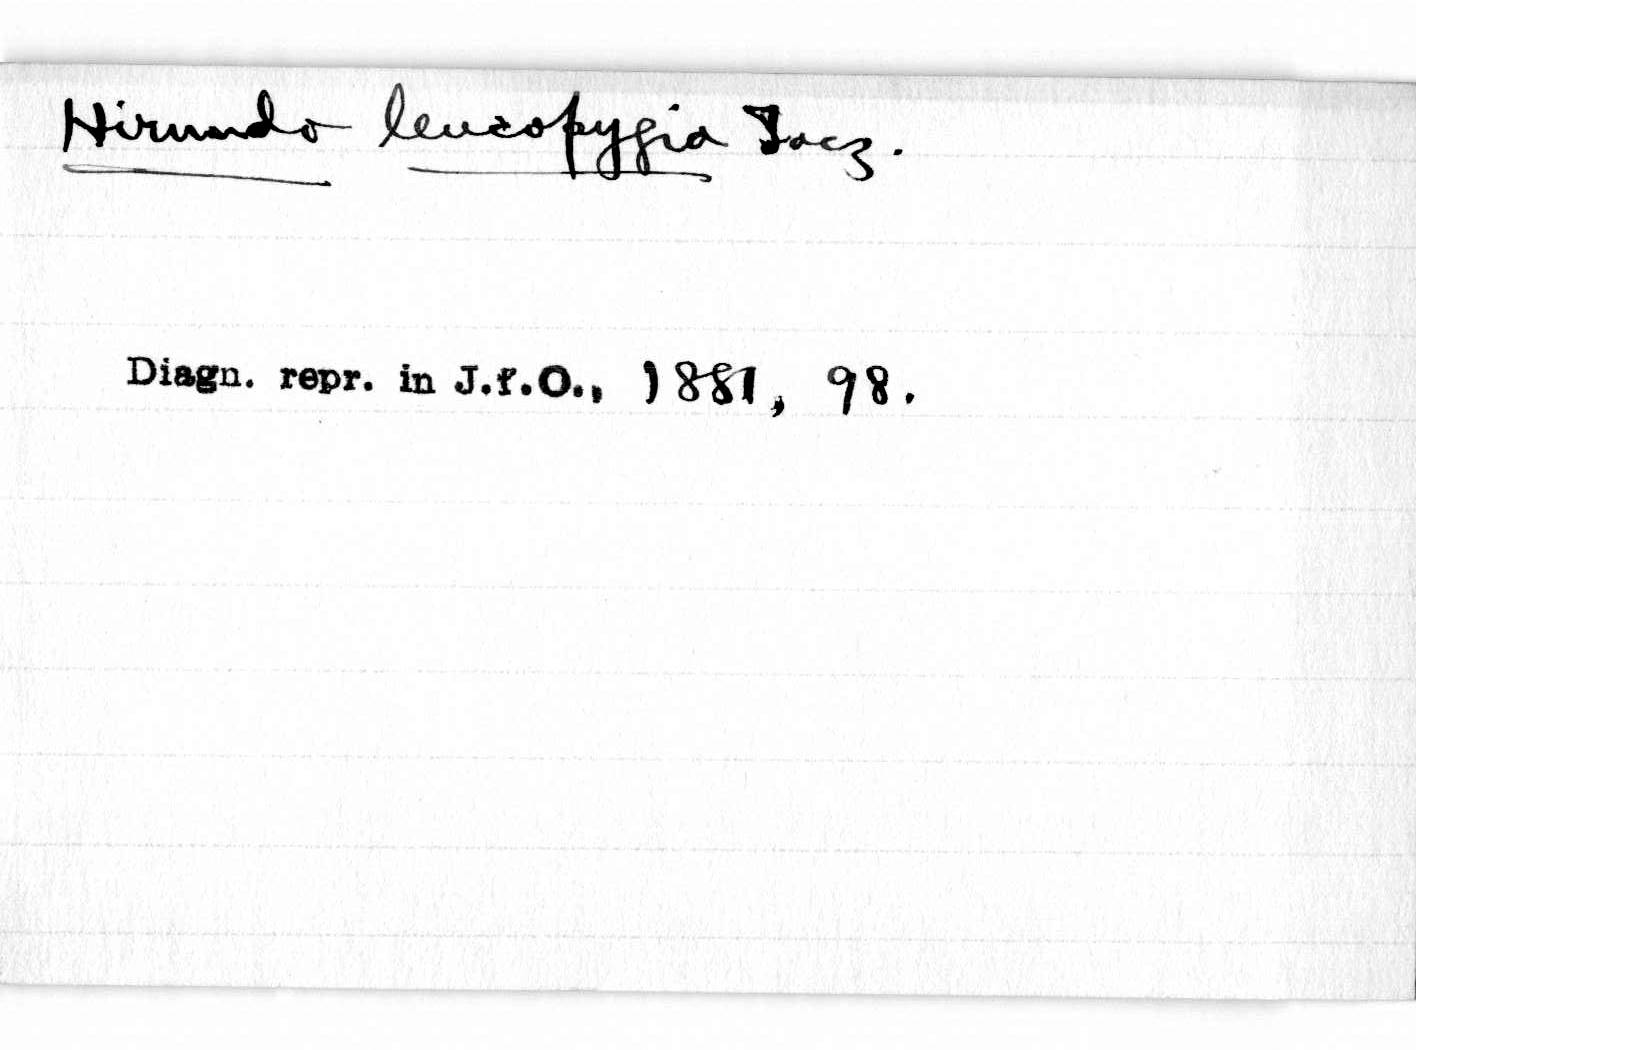 Hirundo leucopygia Tacz.
Diagn. repr. in J.f.O., 1881, 98.